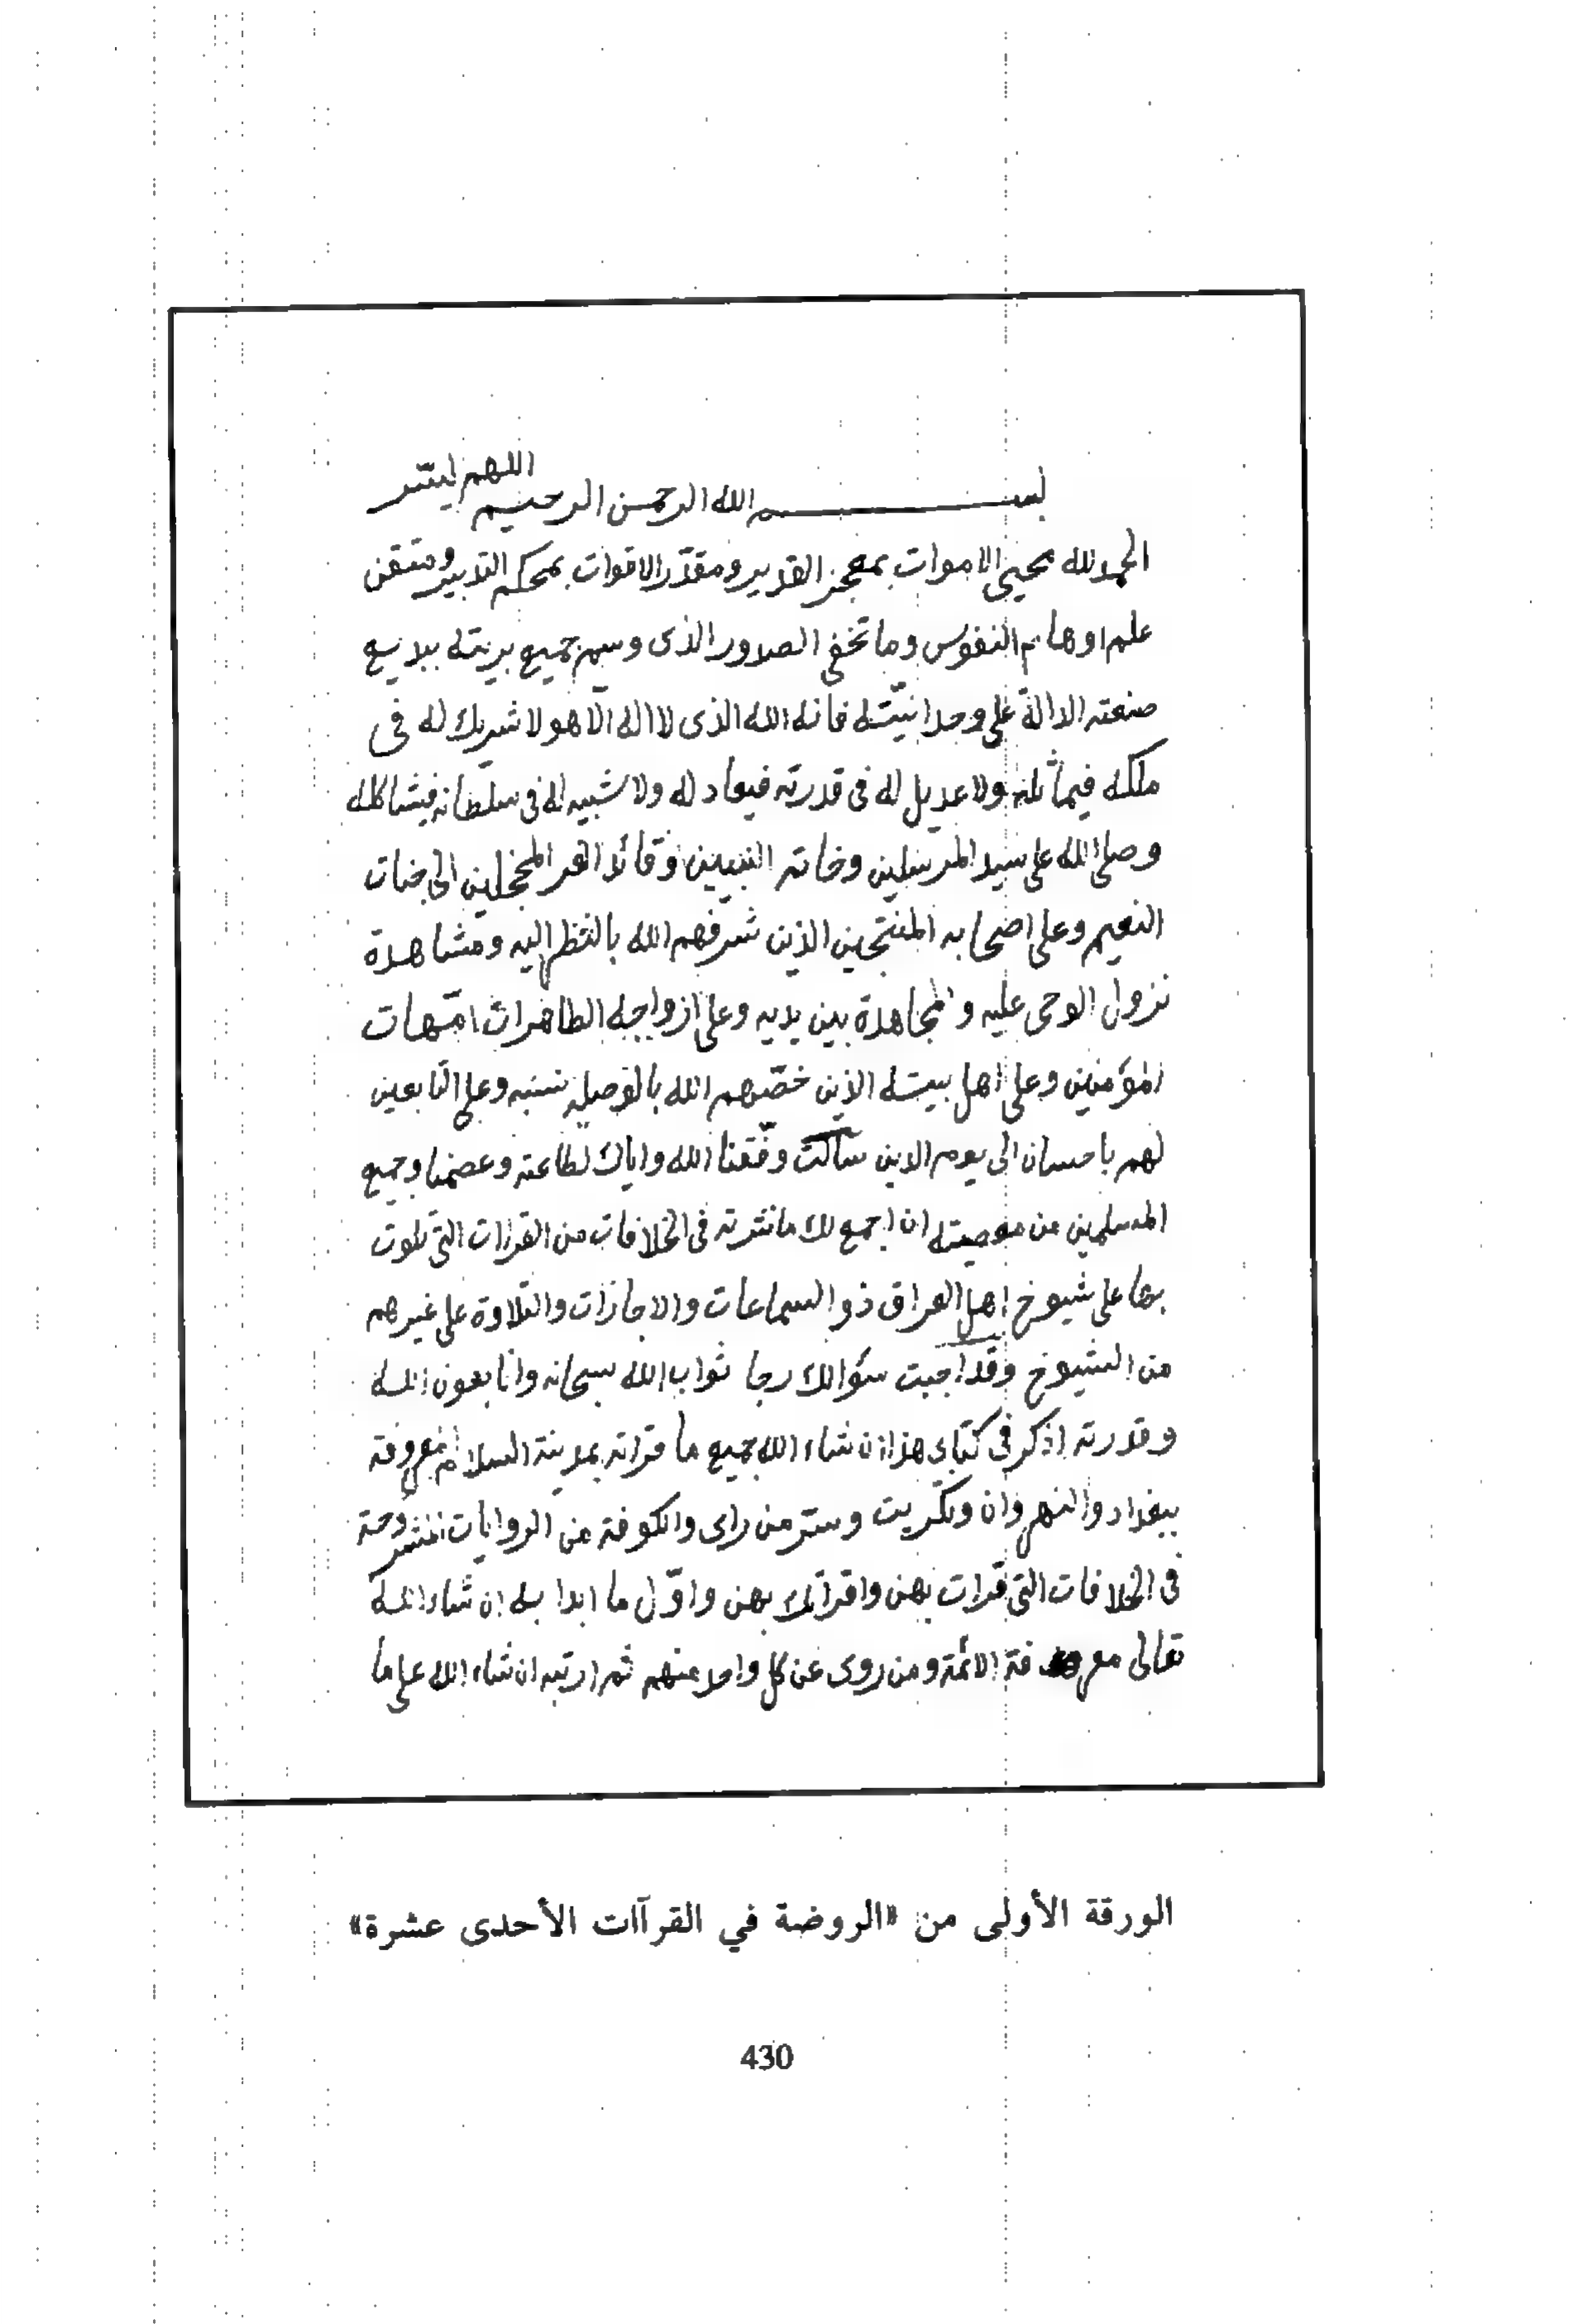 اللهم يسّر
بسم الله الرحمن الرحيم
الحمد لله محيي الاموات بمعجز القدير ومقدّر الاقوات بمحكم التدبير ومتقن
علم اوهام النفوس وما تخفي الصدور الذى وسم جميع بريته ببدايع
صنعته الدالة على وحدانيّته فانه الله الذى لا اله الّا هو لا شريك له فى
ملكه فيماثله ولا عديل له فى قدرته فيعادله ولا شبيه له فى سلطانه فيشاكله
وصلى الله على سيد المرسلين وخاتم النبيين وقائد الغر المحجلين الى جنات
النعيم وعلى اصحابه المنتجبين الذين شرفهم الله بالنظر اليه ومشاهدة
نزول الوحى عليه والمجاهدة بين يديه وعلى ازواجه الطاهرات امّهات
المؤمنين وعلى اهل بيته الذين خصّهم الله بالوصلة بنسبه وعلى التابعين
لهم باحسان الى يوم الدين سالت وفّقنا الله واياك لطاعته وعصمنا وجميع
المسلمين من معصيته ان اجمع لك ما نثرته فى الخلافات من القراات التى تلوت
بها على شيوخ اهل العراق ذو السماعات والاجازات والتلاوة على غيرهم
من الشيوخ وقد اجبت سؤالك رجا ثواب الله سبحانه وانا بعون الله
وقدرته اذكر فى كتابى هذا ان شاء الله جميع ما قراته بمدينة السلام المعروفة
ببغداد والنهروان وتكريت وسرّ من راى والكوفة من الروايات المشروحة
فى الخلافات التى قرات بهن واقراتك بهن واوّل ما ابدا به ان شاء الله
تعالى معرفة الائمة ومن روى عن كل واحد منهم ثم ارتبه ان شاء الله على ما
الورقة الأولى من «الروضة في القرآات الأحدى عشرة»
430